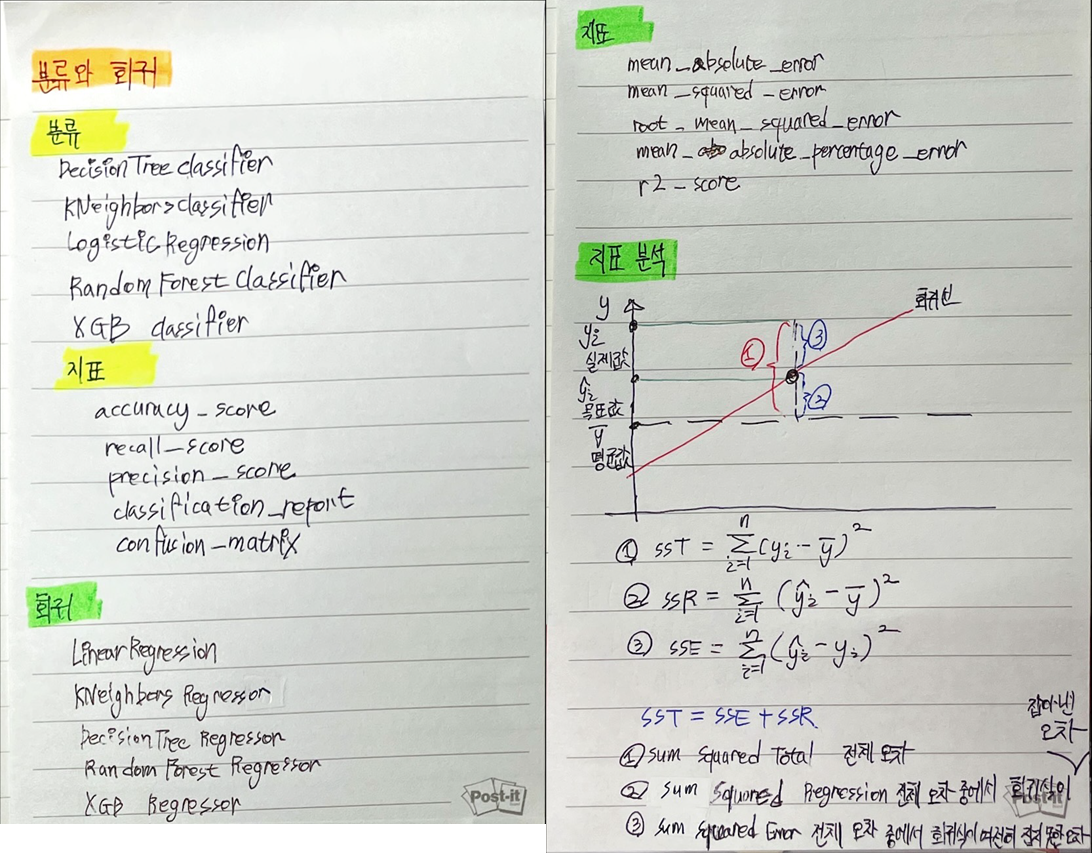 분류와 회귀
분류
DecisionTree classifier
KNeighborsclassifier
Logistic Regression
Random Forest classifier
XGB classifier
지표
accuracy_score
recall_score
precision_score
classification_report
confusion_matrix
회귀
LinearRegression
KNeighbors Regressor
DecisionTree Regressor
Random Forest Regressor
XGB Regressor
Post-it
지표
mean_absolute_error
mean_squared_error
root_mean_squared_error
mean_absolute_percentage_error
r2_score
지표 분석
y
회귀선
yi
실제값
ŷi
목표값
ȳ
평균값
①
③
②
① SST = Σ(yi - ȳ)² n i=1
② SSR = Σ(ŷi - ȳ)² n i=1
③ SSE = Σ(ŷi - yi)² n i=1
SST = SSE + SSR
잡아낸
오차
① sum squared Total 전체 오차
② sum squared Regression 전체 오차 중에서 회귀식이
③ sum squared Error 전체 오차 중에서 회귀식이 여전히 잡지 못한 오차
Post-it